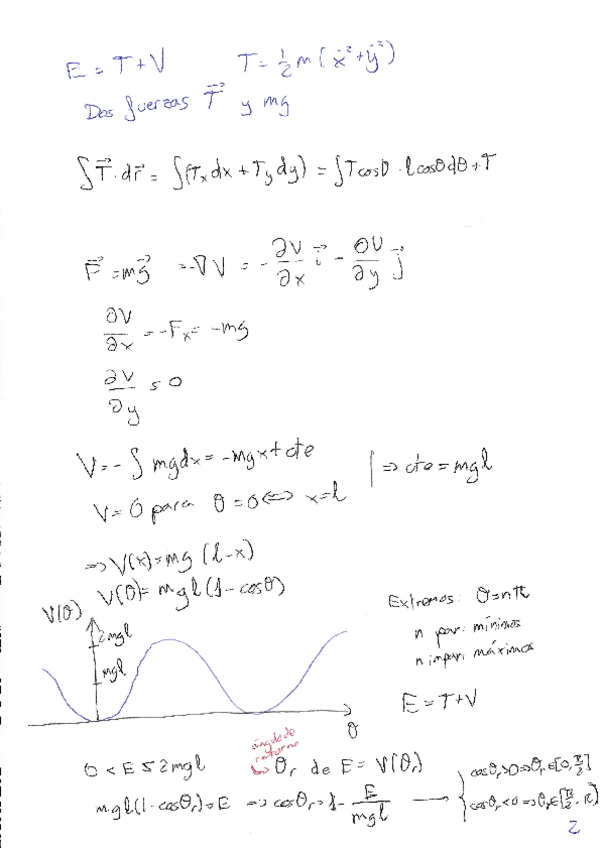 E = T + V    T = 1/2 m (ẋ² + ẏ²)
Dos fuerzas T⃗ y mg
∫T⃗·dr⃗ = ∫(Tₓdx + T_y dy) = ∫Tcosθ · l cosθdθ + T
F⃗ = mg⃗ = -∇V = -∂V/∂x i⃗ - ∂V/∂y j⃗
∂V/∂x = -Fₓ = -mg
∂V/∂y = 0
V = -∫mgdx = -mgx + cte
V = 0 para θ = 0 ⇔ x = l    | ⇒ cte = mgl
⇒ V(x) = mg (l-x)
V(θ) = mgl (1 - cosθ)
V(θ)
2mgl
mgl
θ
Extremos: θ = nπ
n par: mínimos
n impar: máximos
E = T + V
ángulo de
retorno
0 < E ≤ 2mgl    θᵣ de E = V(θᵣ)
mgl(1 - cosθᵣ) = E ⇒ cosθᵣ = 1 - E/mgl → { cosθᵣ > 0 ⇒ θᵣ ∈ [0, π/2]
cosθᵣ < 0 ⇒ θᵣ ∈ [π/2, π]
2